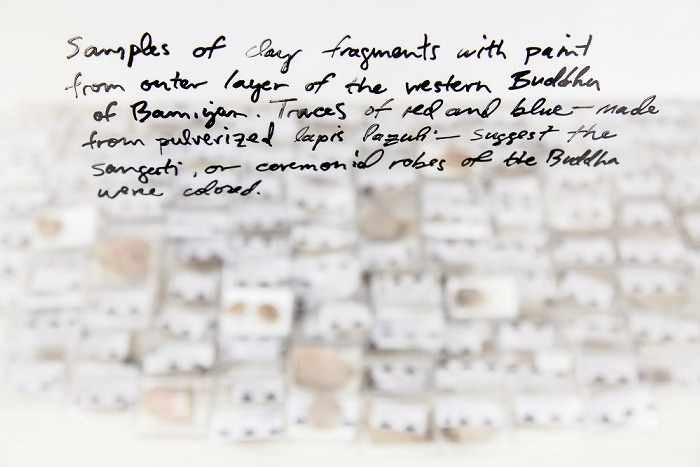 Samples of clay fragments with paint
from outer layer of the western Buddha
of Bamiyan. Traces of red and blue — made
from pulverized lapis lazuli — suggest the
sangati, or ceremonial robes of the Buddha
were colored.